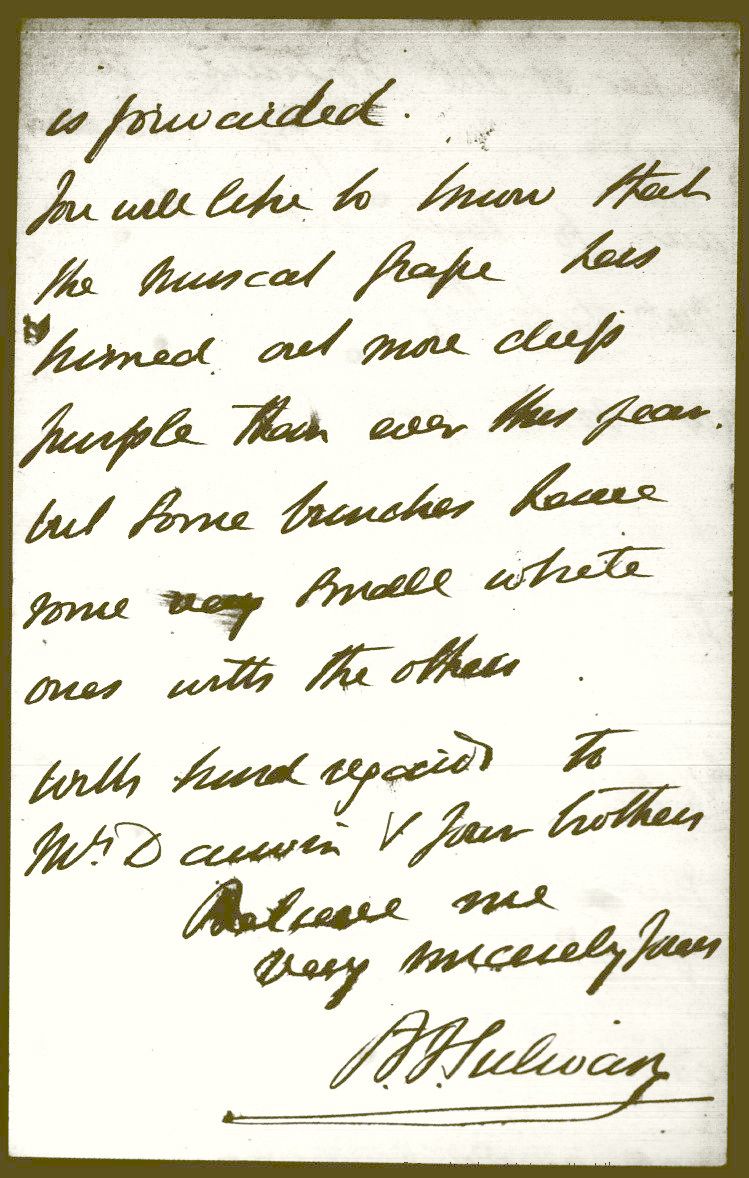 is forwarded.
You will like to know that
the Muscat Grape has
turned out more deep
purple than ever this year.
but some bunches have
some very small white
ones with the others.
With kind regards to
Mrs Darwin & your brothers
Believe me
very sincerely yours
B. J. Sulivan